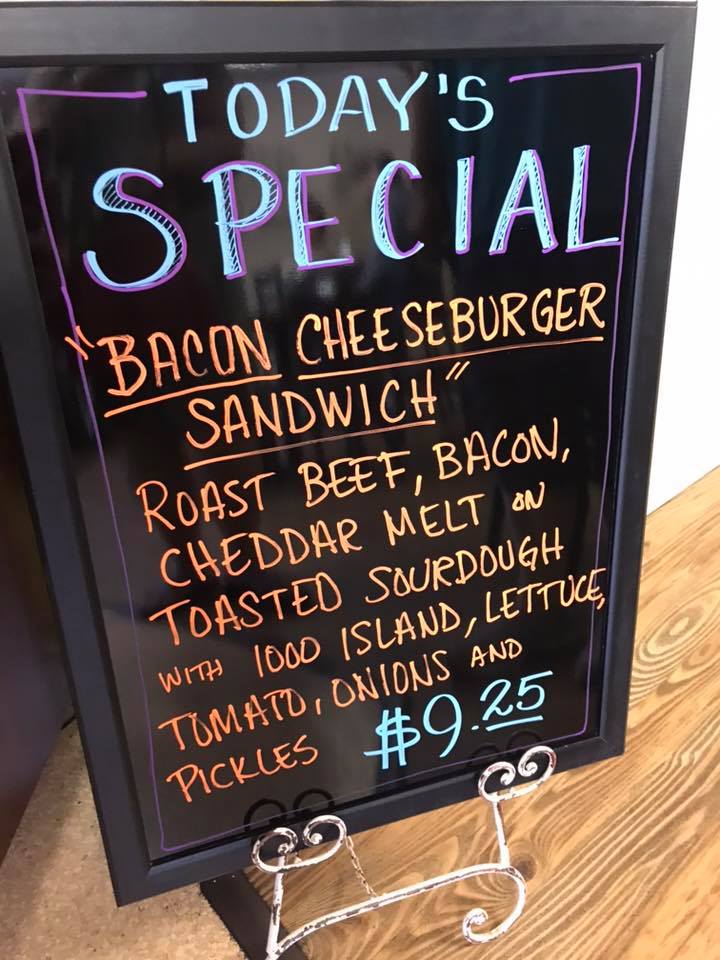 TODAY'S
SPECIAL
"BACON CHEESEBURGER
SANDWICH"
ROAST BEEF, BACON,
CHEDDAR MELT ON
TOASTED SOURDOUGH
WITH 1000 ISLAND, LETTUCE,
TOMATO, ONIONS AND
PICKLES $9.25